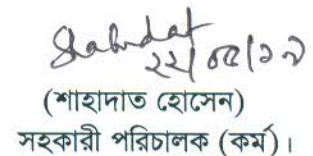 Shahadat
২২/০৫/১৭
(শাহাদাত হোসেন)
সহকারী পরিচালক (কর্ম)।